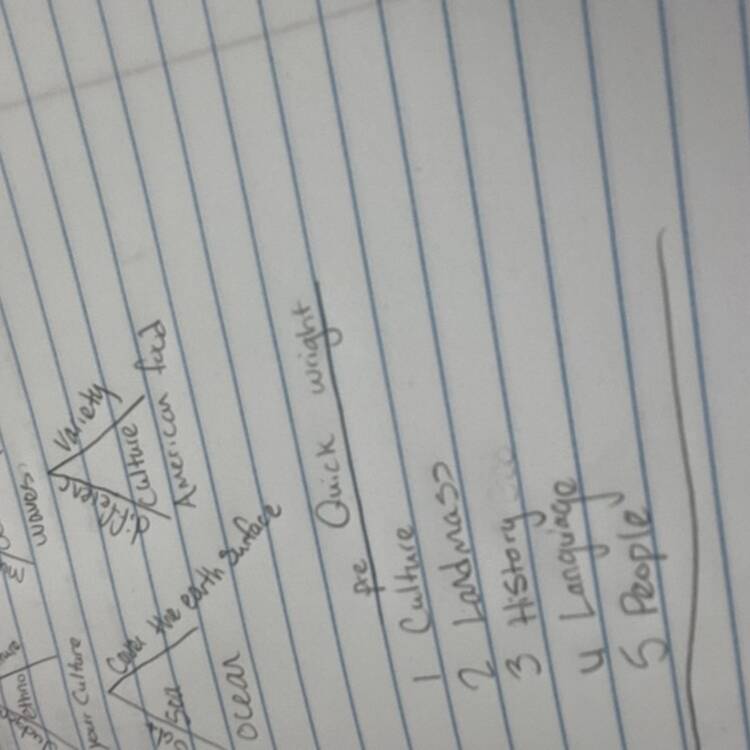 waves.
Variety
different
Culture
American food
ethno
your Culture
Cover the earth surface
sea
ocean
pre Quick wright
1 Culture
2 Landmass
3 History
4 Language
5 People